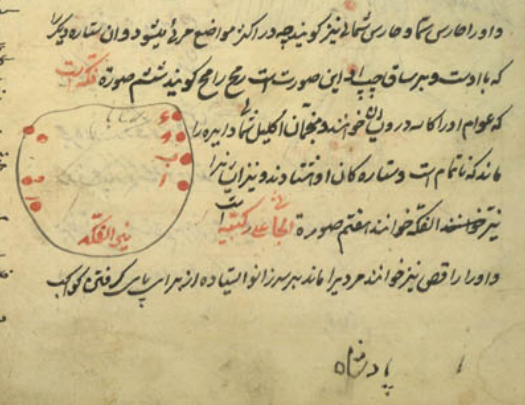 و او را حارس سما و حارس شمال نیز کویند چه در اکثر مواضع مرئی میشود و ان ستاره دیکر
که با اوست و بر ساق چپ این صورت است رمح رامح کویند ششم صورة فکه است
که عوام او را کاسه درویشان خوانند و منجمان اکلیل شمالی دایره را
ماند که ناتمام است و ستاره کان او هشتاند و نیز انرا
نیز الفکه خوانند هفتم صورة الجاثی علی رکبتیه است
نیر الفکه
و او را راقص نیز خوانند مردیرا ماند بر سر زانو ایستاده از برای پای کوفتن کواکب
پادشاه